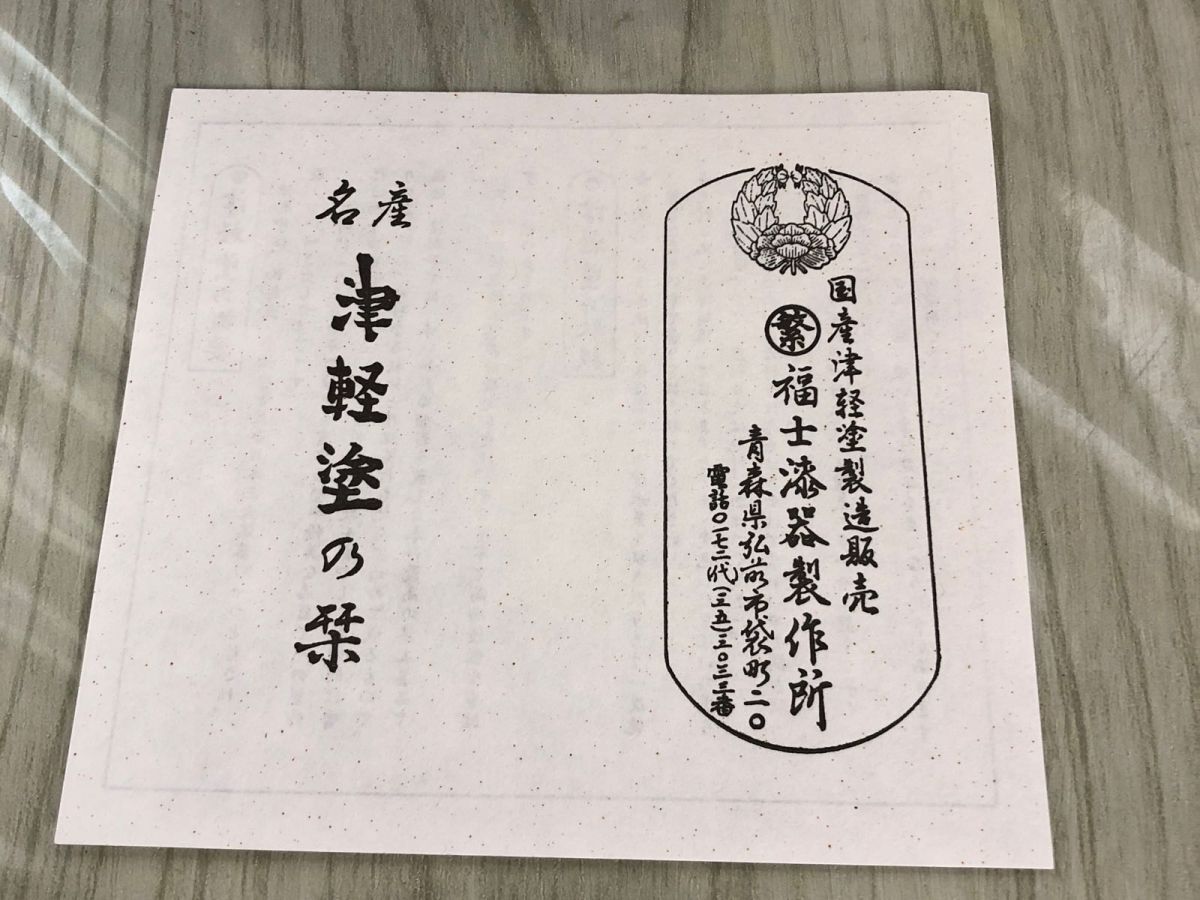 国産津軽塗製造販売
繁 福士漆器製作所
青森県弘前市袋町二〇
電話〇一七二代(三五)三〇三三番
名産
津軽塗の栞